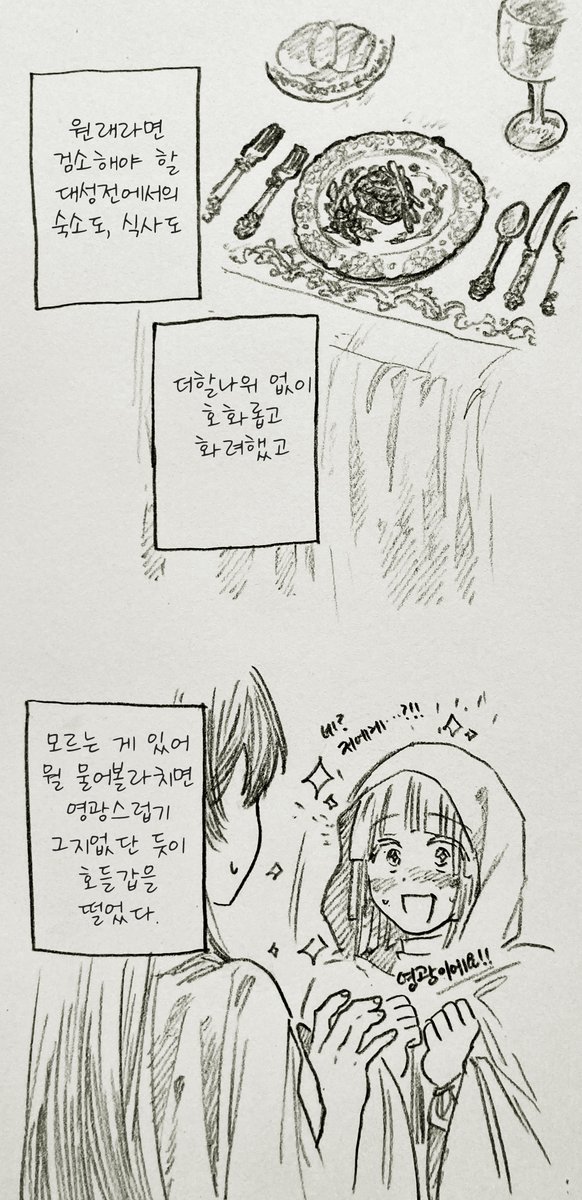 원래라면
검소해야 할
대성전에서의
숙소도, 식사도
더할나위 없이
호화롭고
화려했고
모르는 게 있어
뭘 물어볼라치면
영광스럽기
그지없단 듯이
호들갑을
떨었다.
네?
저에게…?!!
영광이에요!!